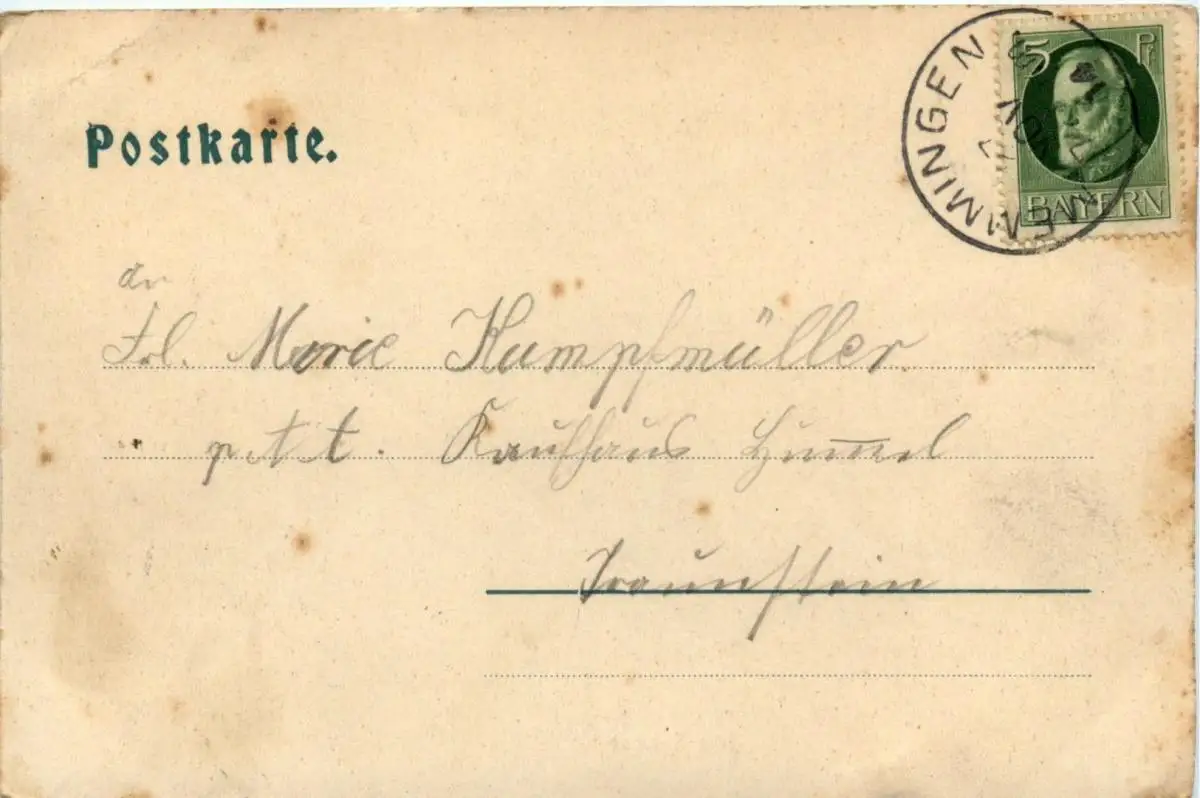 Postkarte.
MEMMINGEN
5 Pf
BAYERN
an
Frl. Marie Kampfmüller
p. A. t. Kaufhaus Hummel
Traunstein